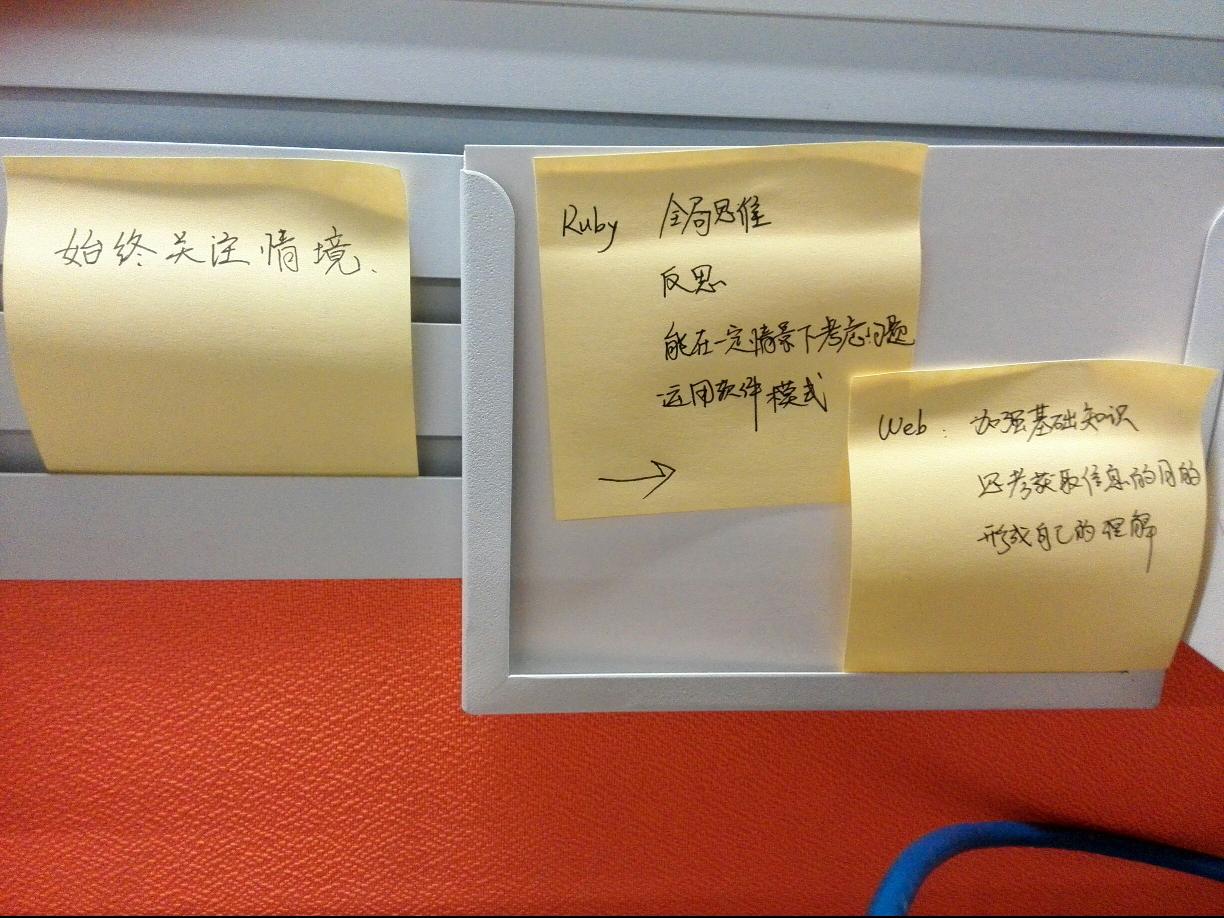 始终关注情境.
Ruby 全局思维
反思
能在一定情景下考虑问题
运用软件模式
→
Web: 加强基础知识
思考获取信息的目的
形成自己的理解